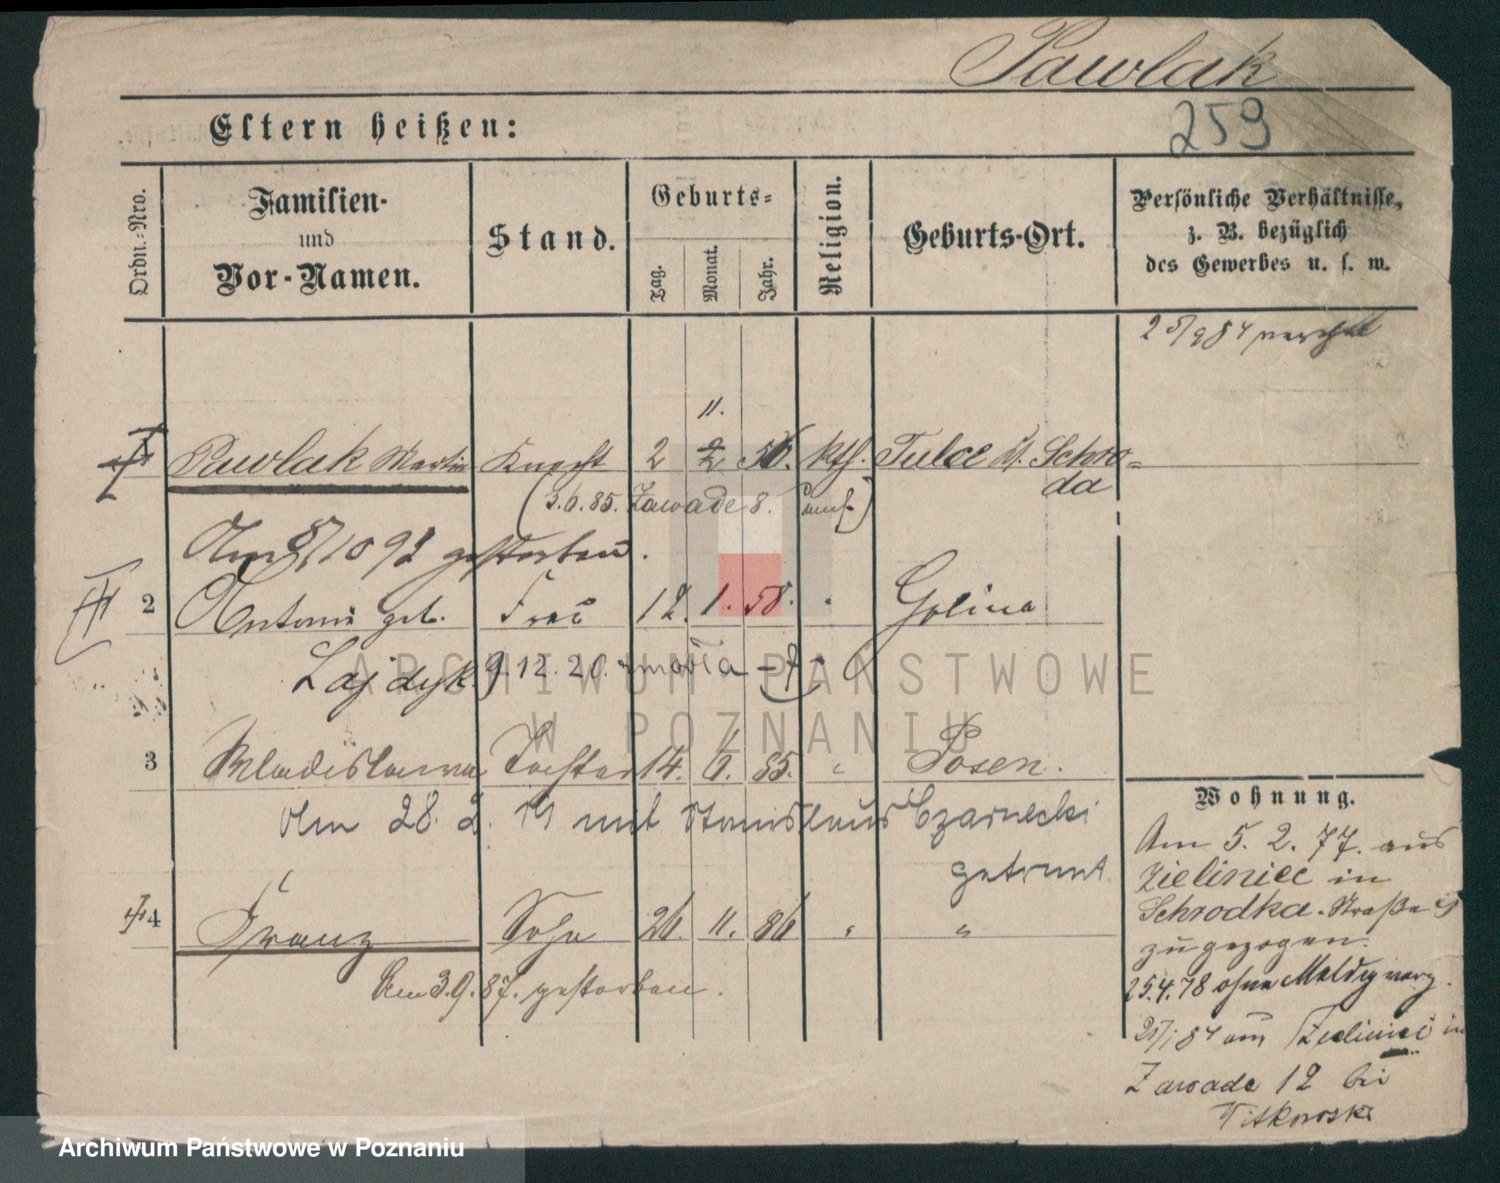 Pawlak
259
Eltern heißen:
Ordn.-Nro.
Familien-
und
Vor-Namen.
Stand.
Geburts-
Tag.
Monat.
Jahr.
Religion.
Geburts-Ort.
Persönliche Verhältnisse,
z. B. bezüglich
des Gewerbes u. s. w.
25/9 84
11.
Pawlak Martin Knecht 2 2 56. kth. Tulce Kr. Schro-
da
(3.6.85. Zawade 8.
Am 8/10 92 gestorben.
2 Antonie geb. Frau 12. 1. 58. Golina
Lajdyk. 9.12.20. zmarła
3 Wladislawa Tochter 14. 6. 85. " Posen.
Am 28. 2. 19 mit Stanislaus Czarnecki
getraut.
4 Franz Sohn 26. 11. 86 " "
Am 3.9.87. gestorben.
Wohnung.
Am 5. 2. 77. aus
Zieliniec in
Schrodka-Straße 9
zugezogen.
25.4.78 ohne Meldg verz.
84 aus Zieliniec in
Zawade 12 bei
Titkowski
ARCHIWUM PAŃSTWOWE
W POZNANIU
Archiwum Państwowe w Poznaniu